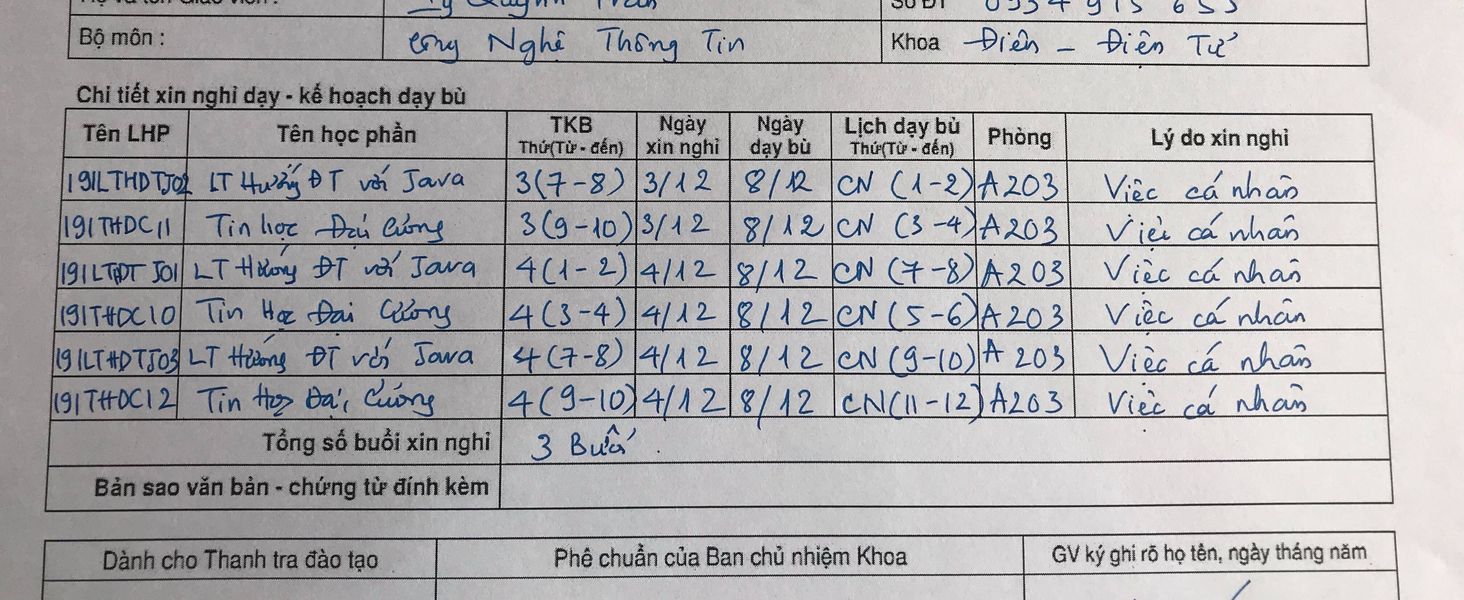 Lý Quỳnh Trân Số ĐT 0934 915 653
Bộ môn : Công Nghệ Thông Tin Khoa Điện - Điện Tử
Chi tiết xin nghỉ dạy - kế hoạch dạy bù
Tên LHP Tên học phần TKB Thứ(Từ - đến) Ngày xin nghỉ Ngày dạy bù Lịch dạy bù Thứ(Từ - đến) Phòng Lý do xin nghỉ
191LTHDTJ02 LT Hướng ĐT với Java 3(7-8) 3/12 8/12 CN (1-2) A203 Việc cá nhân
191THDC11 Tin học Đại Cương 3(9-10) 3/12 8/12 CN (3-4) A203 Việc cá nhân
191LTHDTJ01 LT Hướng ĐT với Java 4(1-2) 4/12 8/12 CN (7-8) A203 Việc cá nhân
191THDC10 Tin Học Đại Cương 4(3-4) 4/12 8/12 CN (5-6) A203 Việc cá nhân
191LTHDTJ03 LT Hướng ĐT với Java 4(7-8) 4/12 8/12 CN (9-10) A203 Việc cá nhân
191THDC12 Tin Học Đại Cương 4(9-10) 4/12 8/12 CN(11-12) A203 Việc cá nhân
Tổng số buổi xin nghỉ 3 Buổi.
Bản sao văn bản - chứng từ đính kèm
Dành cho Thanh tra đào tạo Phê chuẩn của Ban chủ nhiệm Khoa GV ký ghi rõ họ tên, ngày tháng năm